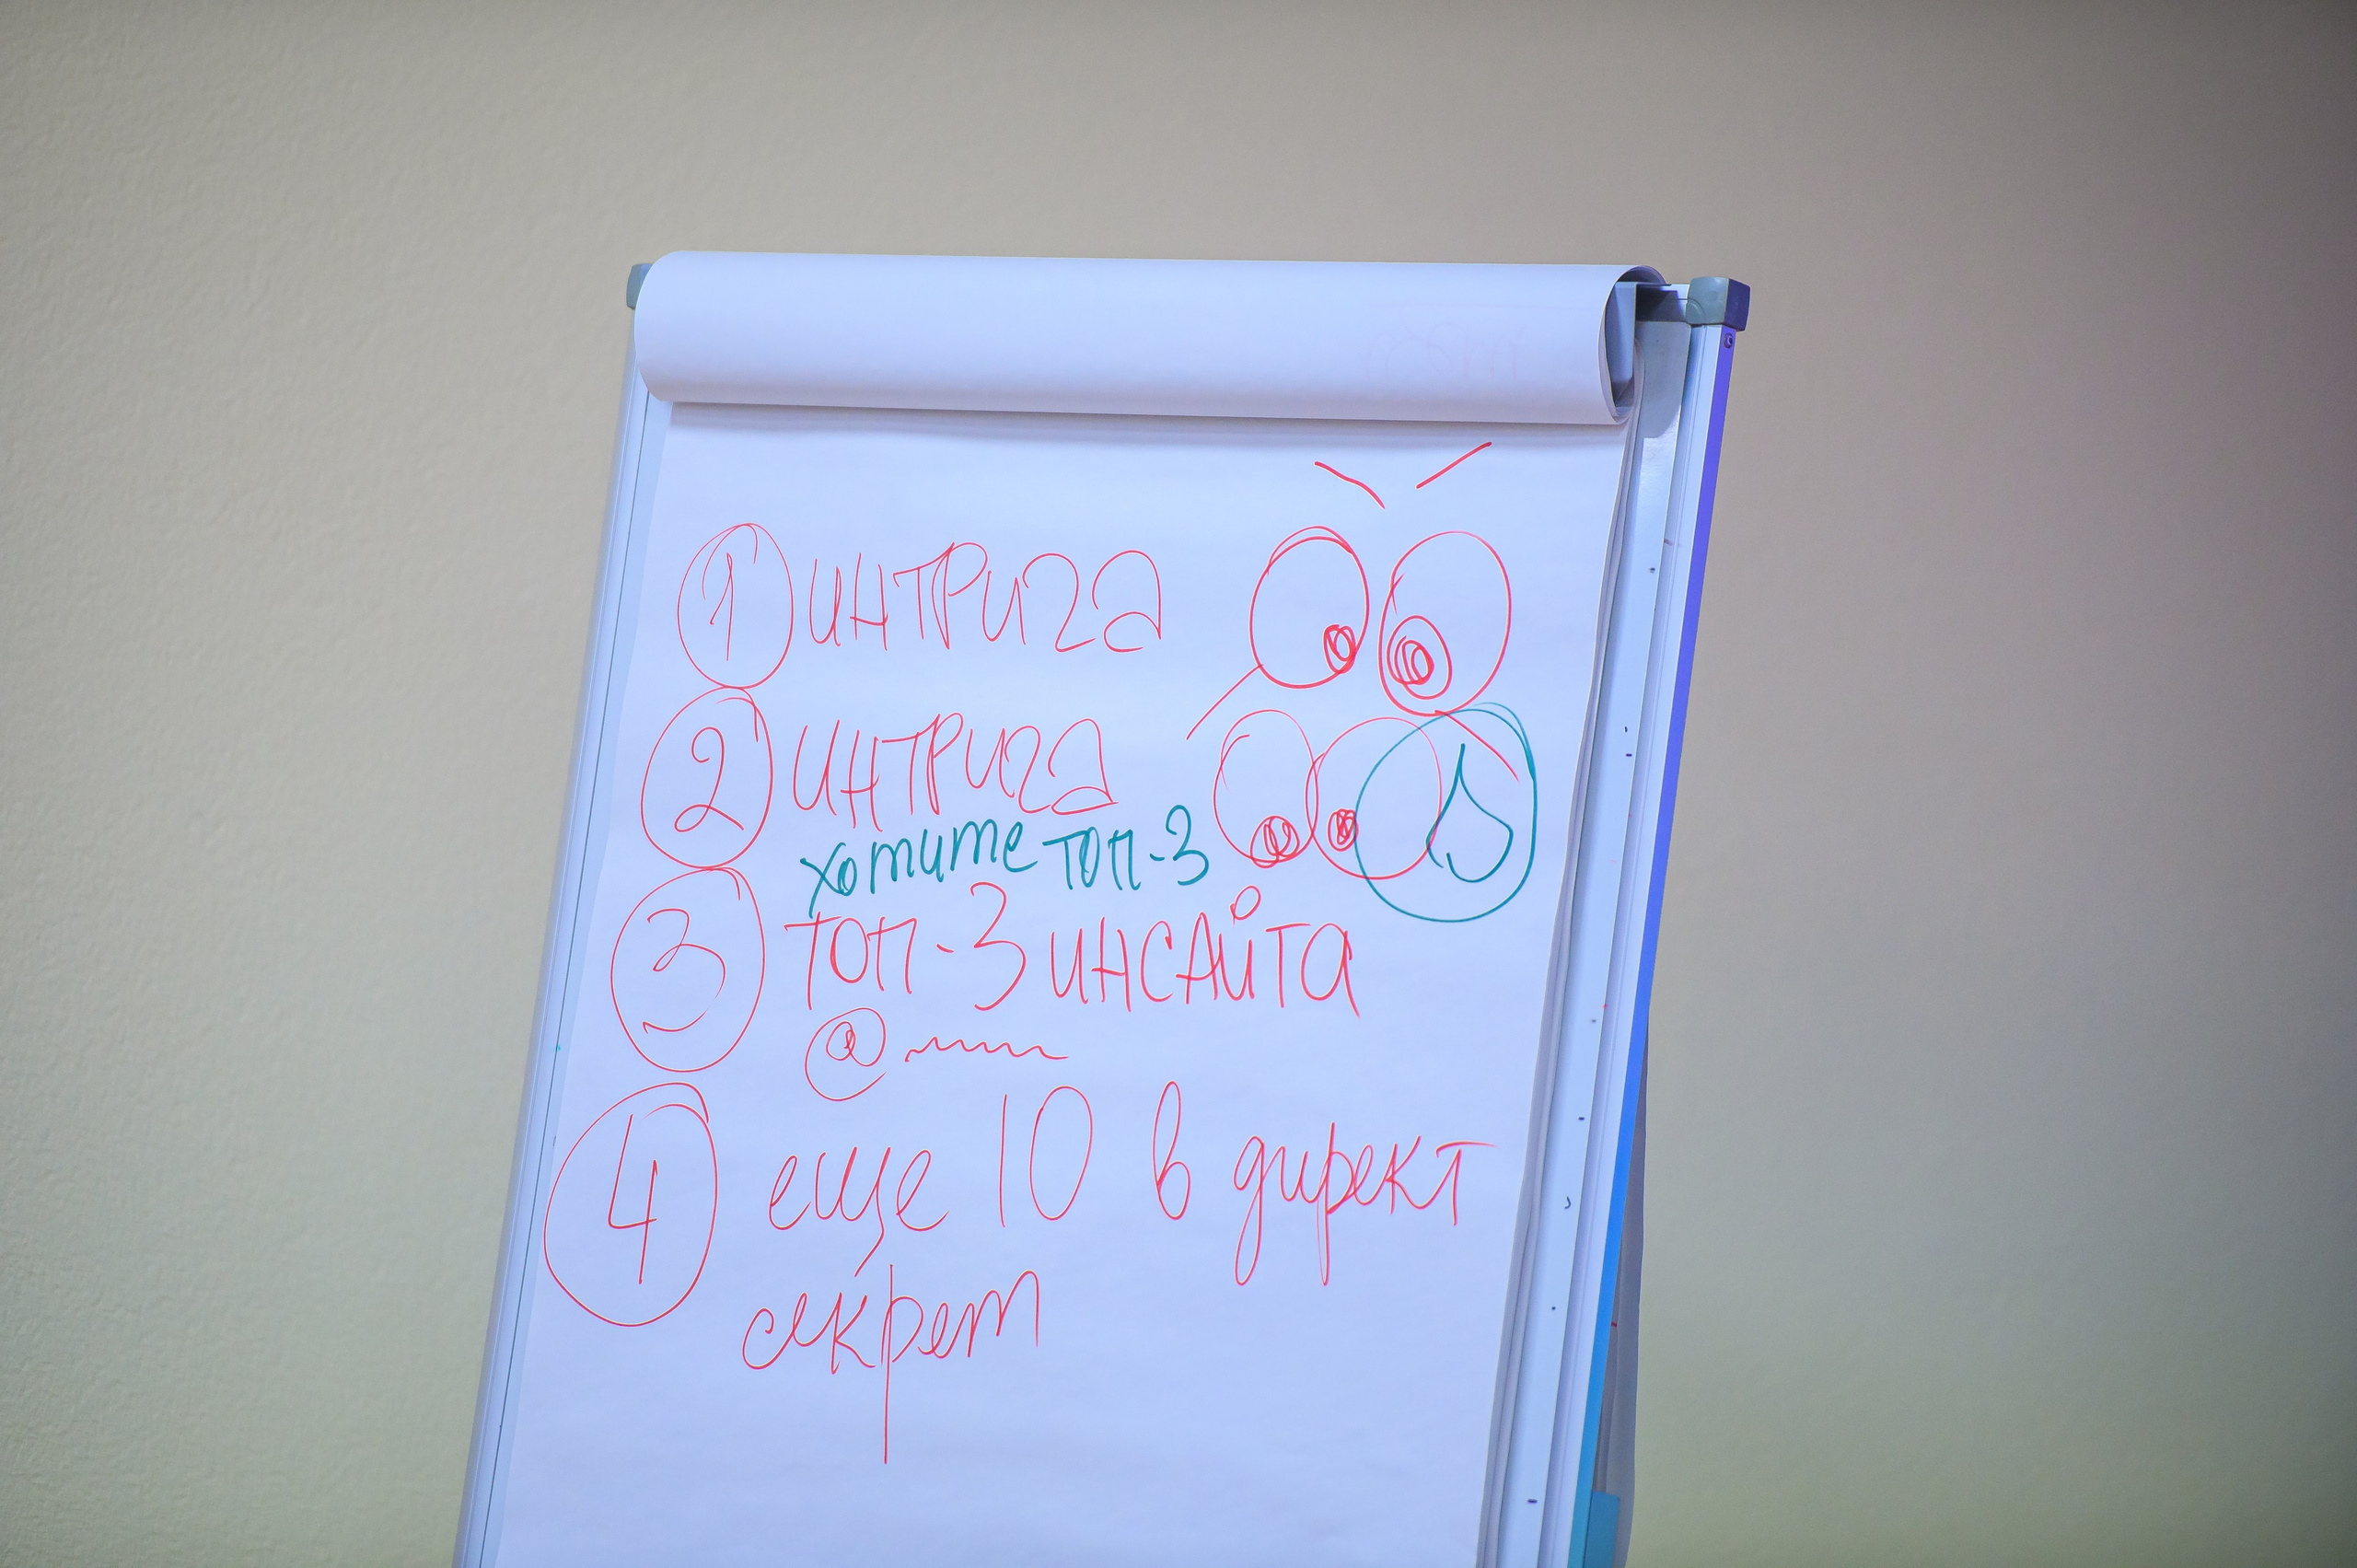 1 ИНТРИГА
2 ИНТРИГА
хотите ТОП-3
3 ТОП-3 ИНСАЙТА
@
4 еще 10 в директ
секрет